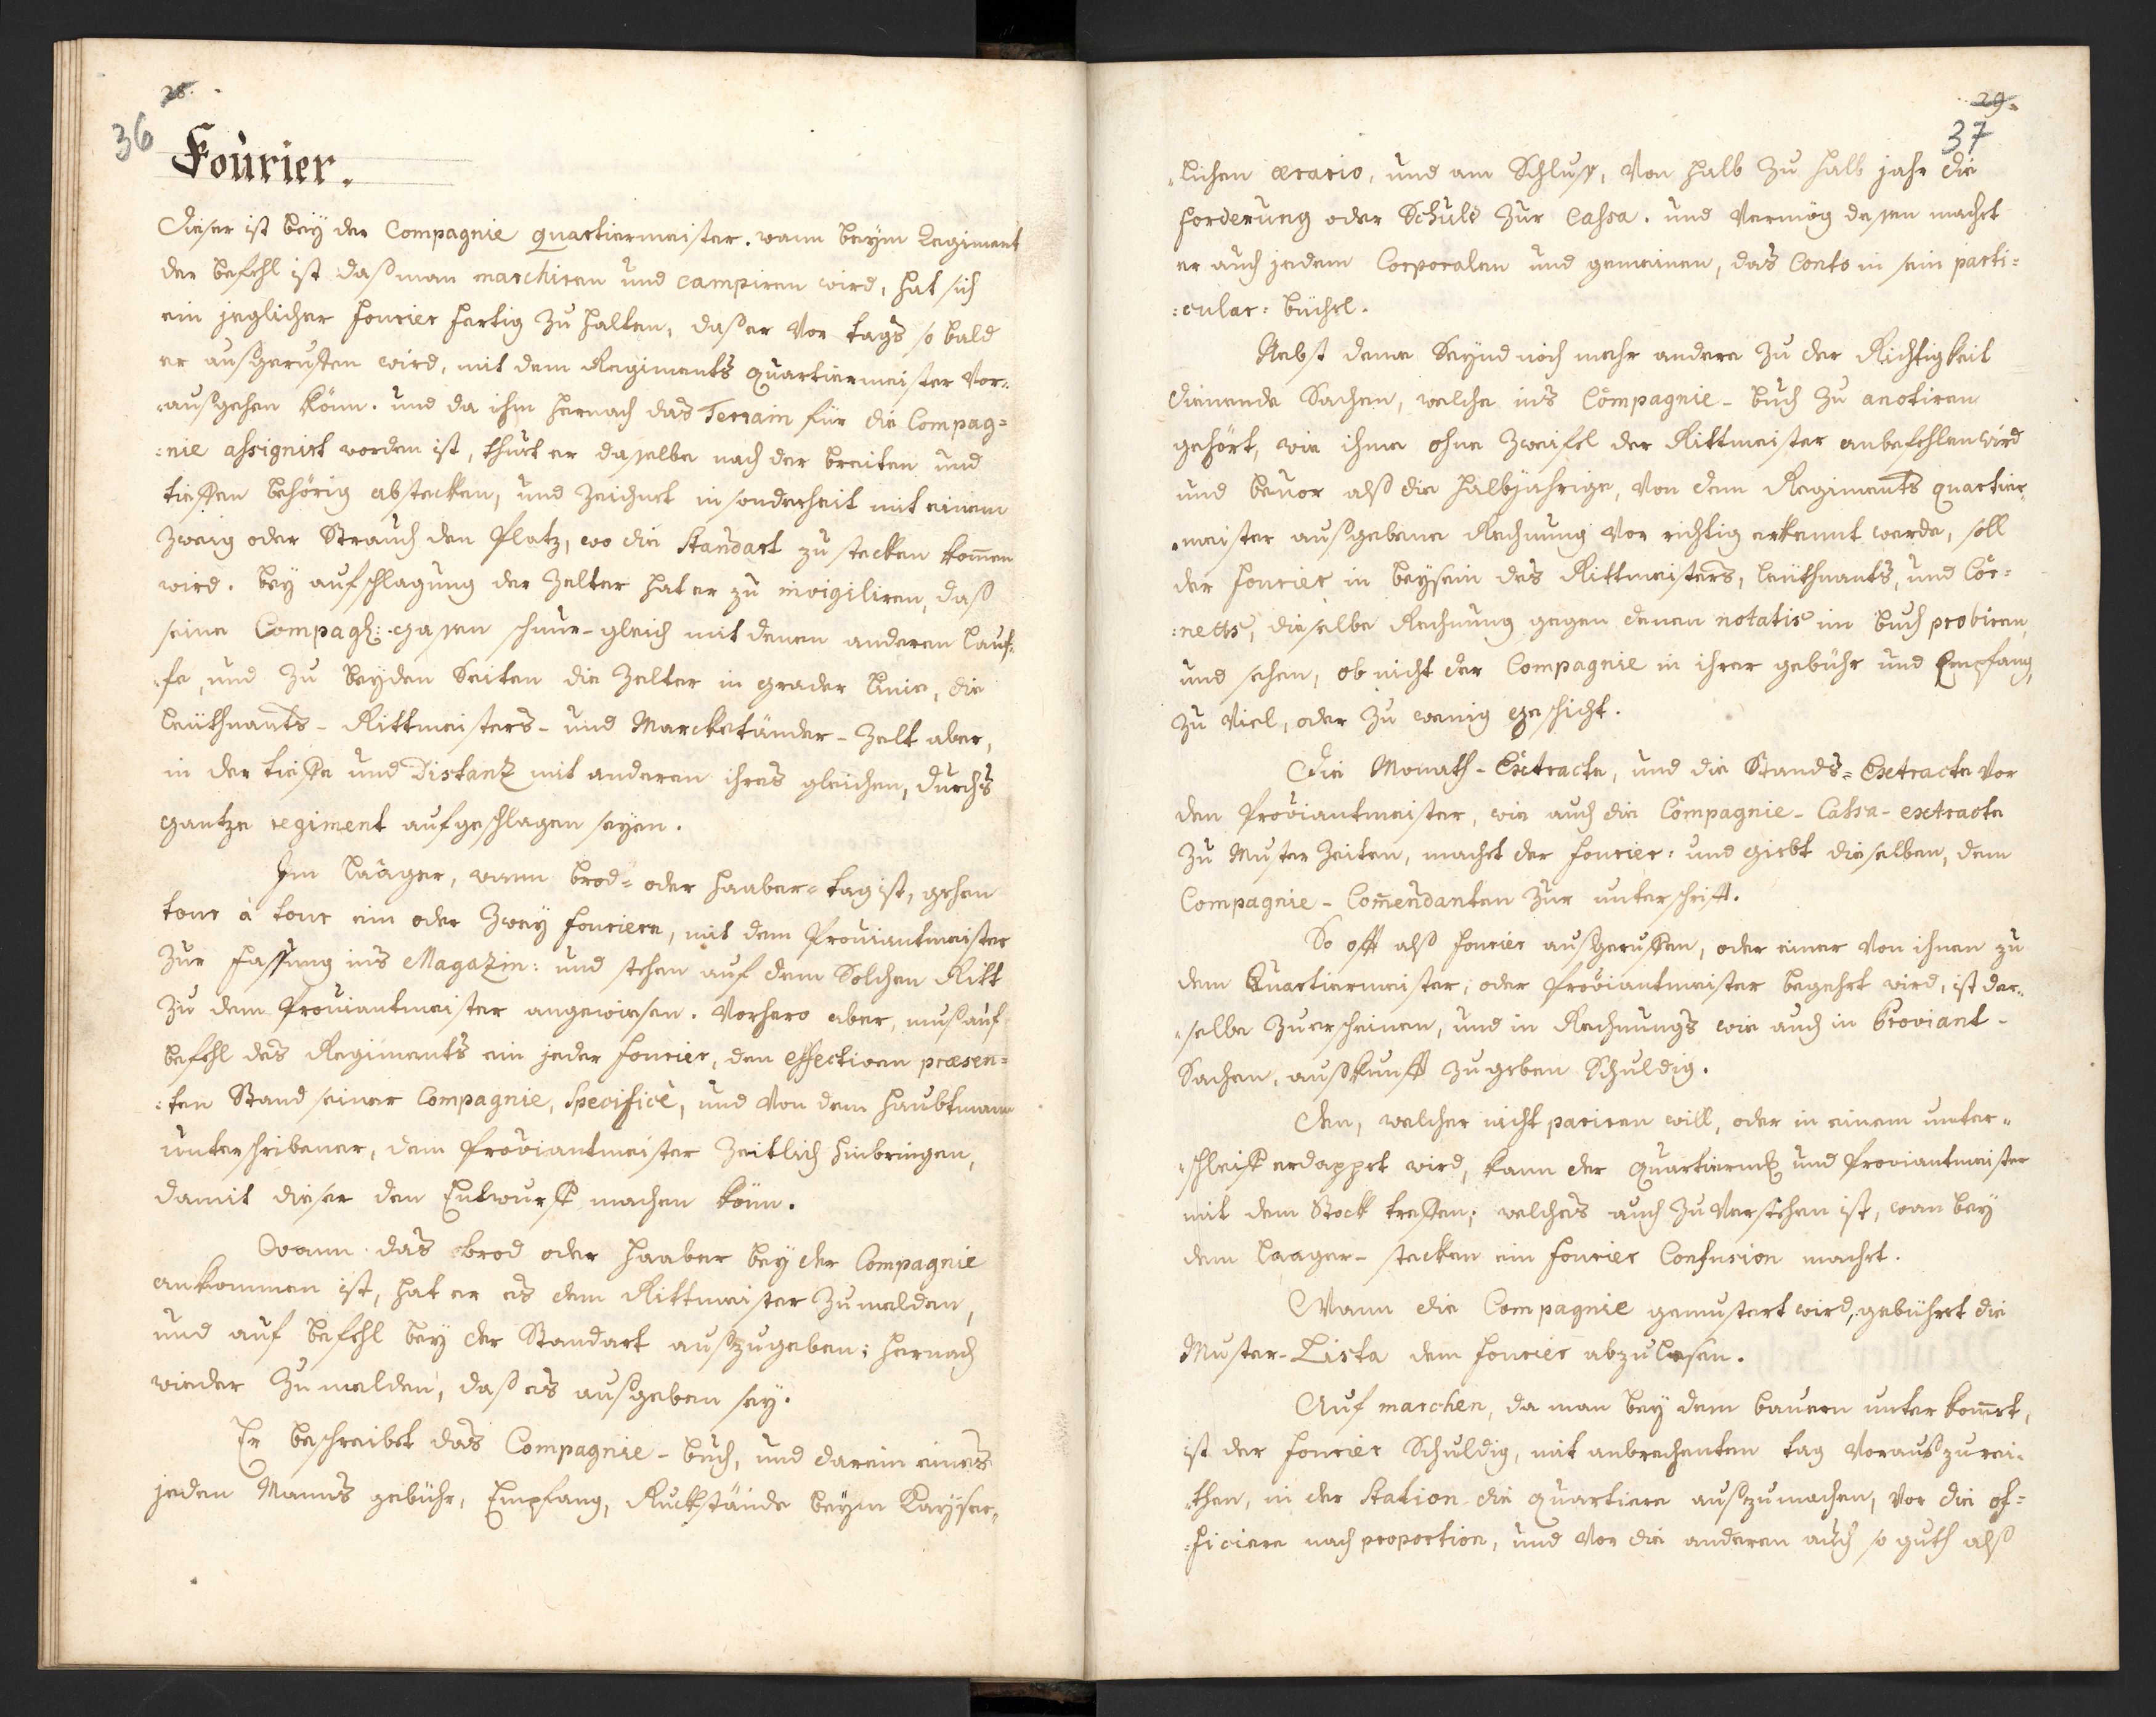 28.
36
Fourier.
Dieser ist bey der Compagnie quartiermeister. wann beym Regiment
der befehl ist daß man marchiren und campiren wird, hat sich
ein jeglicher fourier fertig zu halten, daß er vor tags so bald
er außgeruffen wird, mit dem Regiments quartiermeister vor„
„außgehen könn. und da ihm hernach das Terrain für die Compag=
:nie assignirt worden ist, thuet er dasselbe nach der breiten und
tieffen behörig abstecken, und zeichnet insonderheit mit einem
zweig oder Strauch den Platz, wo die Standart zu stecken kom̄en
wird. bey aufschlagung der Zelter hat er zu invigiliren, daß
seine Compag: gassen schnur-gleich mit denen anderen lauf„
„fe, und zu beyden Seiten die Zelter in grader linie, die
leüthnants- Rittmeisters- und Marcketänder- Zelt aber,
in der tieffe und Distantz mit anderen ihres gleichen, durchs
gantze regiment aufgeschlagen seyen.
Im Lääger, wann brod= oder haaber= tag ist, gehen
tour à tour ein oder zwey fouriere, mit dem Proviantmeister
zur fassung ins Magazin: und stehen auf dem Solchen Ritt
zu dem Proviantmeister angewiesen. Vorhero aber, muß auf
befehl des Regiments ein jeder fourier, den effectiven præsen=
:ten Stand seiner Compagnie, Specificè, und von dem haubtmann
unterschribener, dem Proviantmeister zeitlich hinbringen,
damit dieser den Entwurff machen könn.
Wann das brod oder haaber bey der Compagnie
ankommen ist, hat er es dem Rittmeister zumelden,
und auf befehl bey der Standart außzugeben; hernach
wieder zu melden, daß es außgeben sey.
Er beschreibet das Compagnie- buch, und darein eines
jeden Manns gebühr, Empfang, Ruckstände beym Kayser„
29.
37
„lichen ærario, und am Schluß, von halb zu halb jahr die
forderung oder Schuld zur Cassa. und vermög dessen machet
er auch jedem Corporalen und gemeinen, das Conto in sein parti=
:cular= büchel.
Nebst deme Seynd noch mehr andere zu der Richtigkeit
dienende Sachen, welche ins Compagnie- buch zu anotiren
gehört, wie ihme ohne zweifel der Rittmeister anbefehlen wird
und bevor alß die halbjährige, von dem Regiments quartier„
„meister außgebene Rechnung vor richtig erkennt werde, soll
der fourier in beysein des Rittmeisters, leüthnants, und Cor=
:netts, dieselbe Rechnung gegen denen notatis im buch probiren,
und sehen, ob nicht der Compagnie in ihrer gebühr und Empfang,
zu viel, oder zu wenig geschicht.
Die Monath- Extracte, und die Stands= Extracte vor
den Proviantmeister, wie auch die Compagnie- Cassa- extracte
zu Muster zeiten, machet der fourier: und giebt dieselben, dem
Compagnie- Com̄endanten zur unterschrift.
So oft alß fourier außgeruffen, oder einer von ihnen zu
dem Quartiermeister, oder Proviantmeister begehrt wird, ist der„
„selbe zuerscheinen, und in Rechnungs wie auch in Proviant-
Sachen, außkunft zugeben Schuldig.
Den, welcher nicht pariren will, oder in einem unter„
„schleiff erdappet wird, kann der quartierm: und Proviantmeister
mit dem Stock treffen; welches auch zu verstehen ist, wan bey
dem Laager- stecken ein fourier Confusion machet.
Wann die Compagnie gemustert wird, gebühret die
Muster-Lista dem fourier abzulesen.
Auf marchen, da man bey dem bauern unter kom̄et,
ist der fourier Schuldig, mit anbrechenten tag vorauß zurei„
„then, in der Station die quartiere außzumachen, vor die of=
:ficiere nach proportion, und vor die anderen auch so guth alß